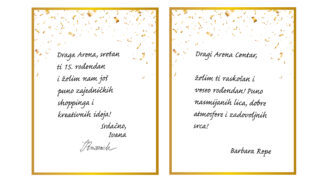 Draga Arena, sretan
ti 15. rođendan
i želim nam još
puno zajedničkih
shoppinga i
kreativnih ideja!
Srdačno,
Ivana
Dragi Arena Centar,
želim ti raskošan i
veseo rođendan! Puno
nasmijanih lica, dobre
atmosfere i zadovoljnih
srca!
Barbara Rope